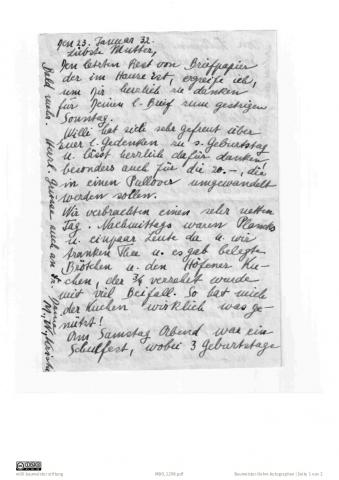 Den 23. Januar 32.
Liebste Mutter,
Den letzten Rest von Briefpapier
der im Hause ist, ergreife ich,
um Dir herzlich zu danken
für Deinen l. Brief zum gestrigen
Sonntag.
Willi hat sich sehr gefreut über
Euer l. Gedenken zu s. Geburtstag
u. lässt herzlich dafür danken
besonders auch für die 20.-, die
in einen Pullover umgewandelt
werden sollen.
Wir verbrachten einen sehr netten
Tag. Nachmittags waren
u. ein paar Leute da u. wir
tranken Thee u. es gab belegte
Brötchen u. den Höfener Ku-
chen, der 3/4 verzehrt wurde
mit viel Beifall. So hat mich
der Kuchen wirklich was ge-
nützt!
Am Samstag Abend war ein
Schulfest, wobei 3 Geburtstage
Bald mehr. Herzl. Grüsse auch an
willi baumeister stiftung
Baumeister Online Autographen | Seite 1 von 2